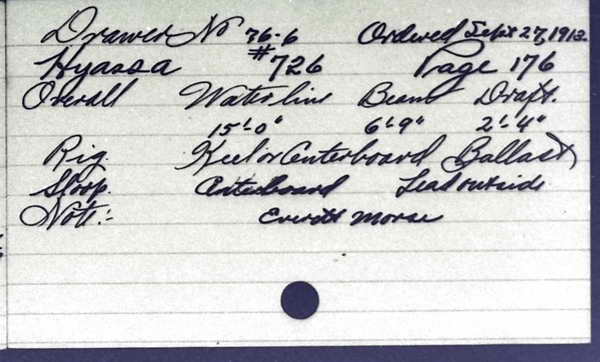 Drawer No 76-6 Ordered Sept 27, 1912
Hyassa #726 Page 176
Overall Waterline Beam Draft.
15'-0" 6'-9" 2'-4"
Rig. Keel or Centerboard Ballast
Sloop. Centerboard Lead outside
Note:- Everett Morse